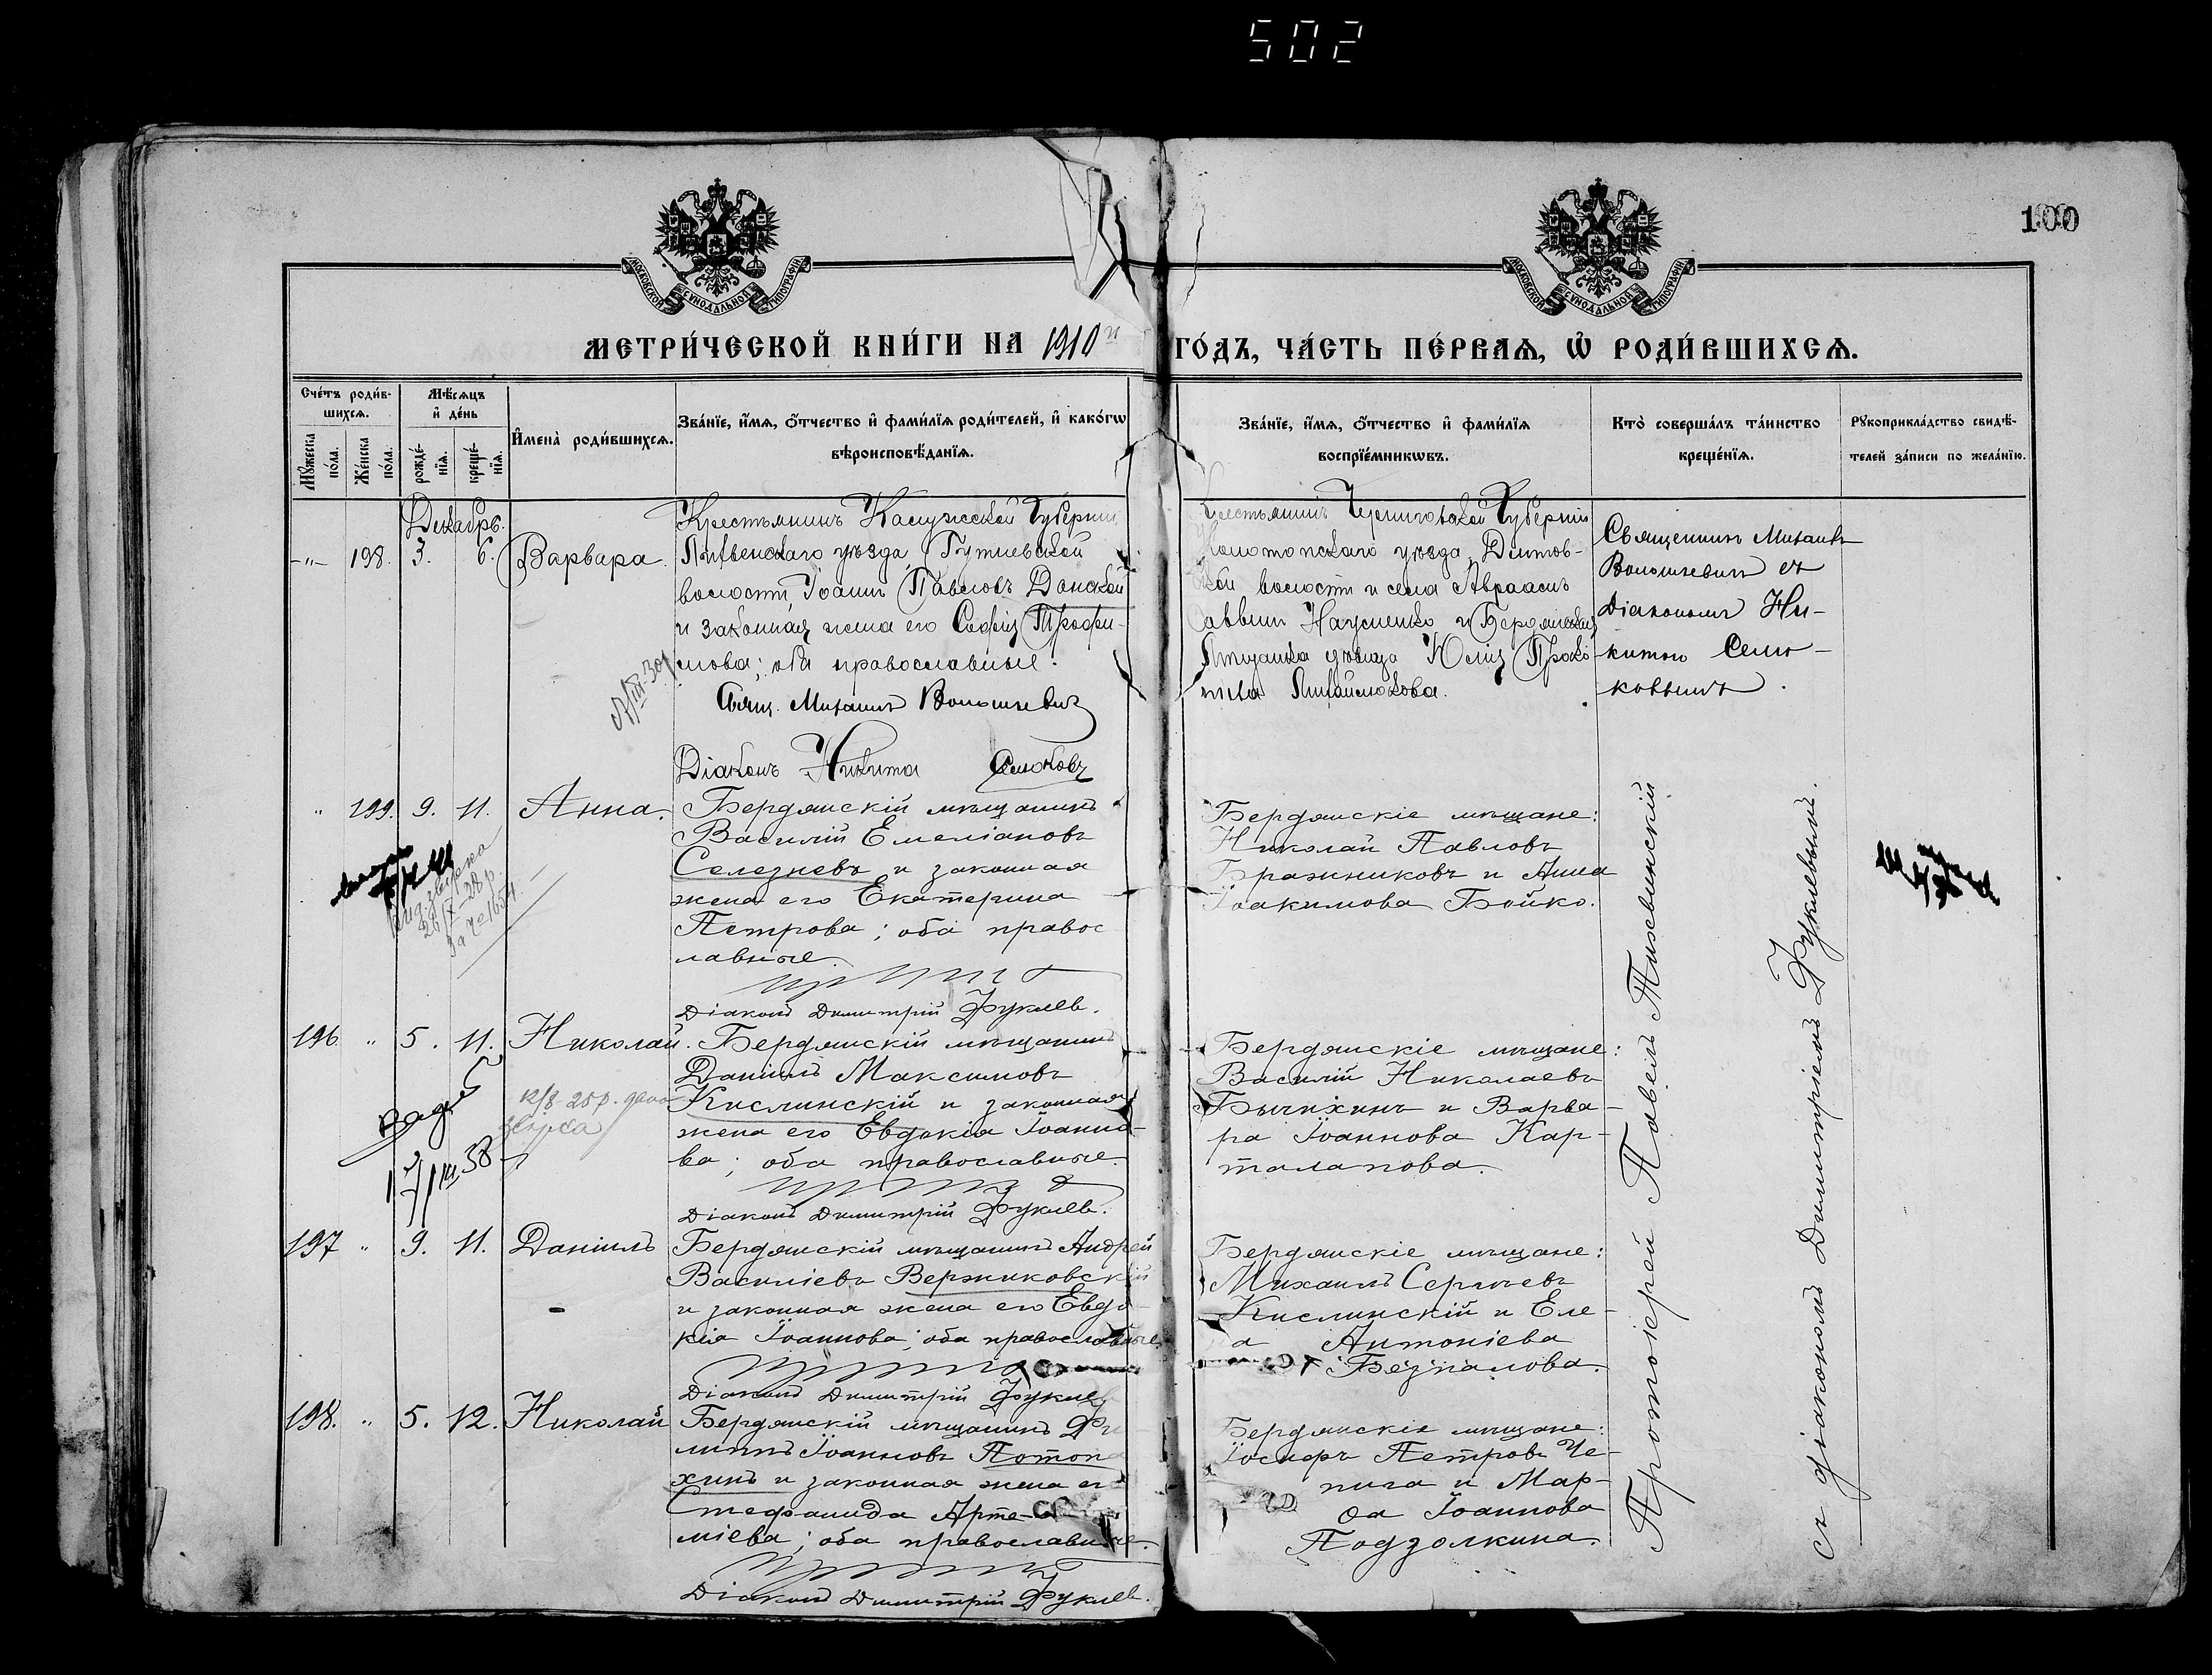 502
100
МОСКОВСКОЙ СѴНОДАЛЬНОЙ ТИПОГРАФІИ
МОСКОВСКОЙ СѴНОДАЛЬНОЙ ТИПОГРАФІИ
МЕТРИ́ЧЕСКОЙ КНИ́ГИ НА 1910й ГО́ДЪ, ЧА́СТЬ ПЕ́РВАѦ, Ѡ҆ РОДИ́ВШИХСѦ.
Сче́тъ роди́в-
шихсѧ.
Мꙋ́жеска по́ла.
Же́нска по́ла.
Мѣ́сѧцъ
и҆ де́нь
рожде́-
нїѧ.
креще́-
нїѧ.
И҆мена̀ роди́вшихсѧ.
Зва́нїе, и҆́мѧ, ѻ҆́тчество и҆ фами́лїѧ роди́телей, и҆ како́гѡ
вѣроисповѣ́данїѧ.
Зва́нїе, и҆́мѧ, ѻ҆́тчество и҆ фами́лїѧ
воспрїе́мникѡвъ.
Кто̀ соверша́лъ та́инство
креще́нїѧ.
Рꙋкоприкла́дство свидѣ́-
телей за́писи по жела́нїю.
Декабрь.
-"- 198. 3. 6. Варвара.
Крестьянинъ Калужской Губерніи
уѣзда,
волости, Іоаннъ Павловъ Донской
и законная жена его Софія Трофи-
мова; оба православные.
Свящ. Михаилъ Волошкевичъ
Діаконъ Никита Семоковъ
Крестьянинъ Черниговской Губерніи
Конотопскаго уѣзда,
волости и села Авраамъ
Саввинъ Науменко и Бердянская
мѣщанка дѣвица Юлія Проко-
піева Михайлюкова.
Священникъ Михаилъ
Волошкевичъ съ
діакономъ Ни-
китою Семо-
ковымъ.
" 199. 9. 11. Анна.
Бердянскій мѣщанинъ
Василій Емеліановъ
Селезневъ и законная
жена его Екатерина
Петрова; оба правос
лавные.
Діаконъ Димитрій Фукиев.
Бердянскіе мѣщане:
Николай Павловъ
Бражниковъ и Анна
Іоакимова Бойко.
196. " 5. 11. Николай.
Бердянскій мѣщанинъ
Даніилъ Максимовъ
Кислинскій и законная
жена его Евдокія Іоанно-
ва; оба православные.
Діаконъ Димитрій Фукиев.
Бердянскіе мѣщане:
Василій Николаевъ
Бычихинъ и Варва-
ра Іоаннова Кар-
талапова.
197 " 9. 11. Даніилъ
Бердянскій мѣщанинъ Андрей
Василіевъ Вержиковскій
и законная жена его Евдо-
кія Іоаннова; оба православные.
Діаконъ Димитрій Фукиев
Бердянскіе мѣщане:
Михаилъ Сергіевъ
Кислинскій и Еле-
а Антоніева
Безпалова.
198. " 5. 12. Николай
Бердянскій мѣщанинъ Фи
липпъ Іоанновъ Потопа
хинъ и законная жена его
Стефанида Арте-
міева; оба православные.
Діаконъ Димитрій Фукиев.
Бердянскіе мѣщане:
Іосифъ Петровъ Че-
пига и Мар-
ѳа Іоаннова
Подзолкина.
Протоіерей Павелъ Пихевинскій
съ діакономъ Димитріемъ Фукиевымъ.